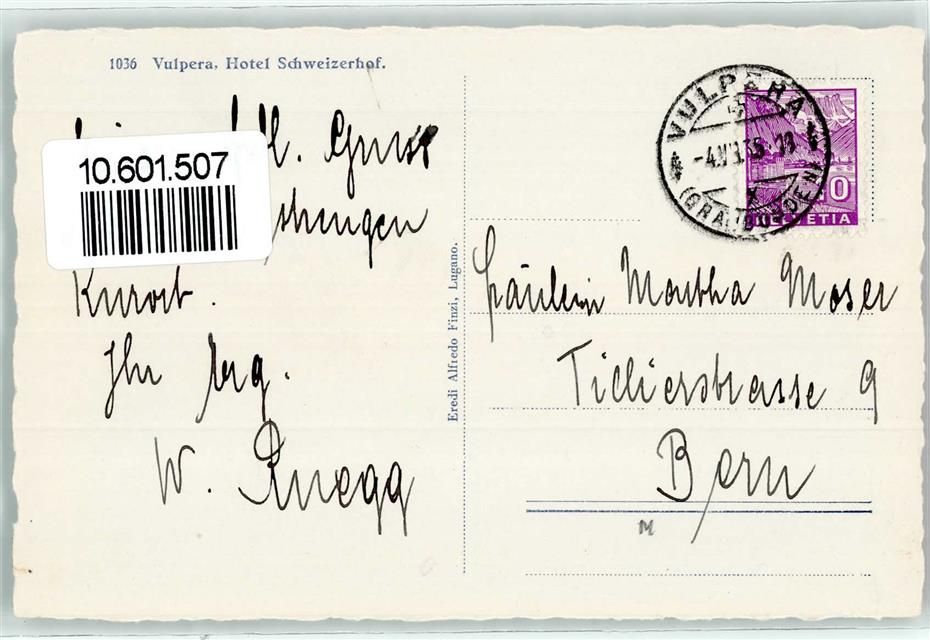 1036 Vulpera, Hotel Schweizerhof.
10.601.507
Kurort.
Ihr erg.
W. Ruegg
Eredi Alfredo Finzi, Lugano.
VULPERA
(GRAUBÜNDEN)
10
HELVETIA
Fräulein Martha Moser
Tillierstrasse 9
Bern
M